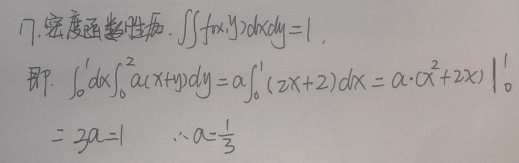 17. 密度函数性质. ∬f(x,y)dxdy=1.
即. ∫₀¹dx∫₀²a(x+y)dy=a∫₀¹(2x+2)dx=a·(x²+2x)|₀¹
=3a=1 ∴a=1/3